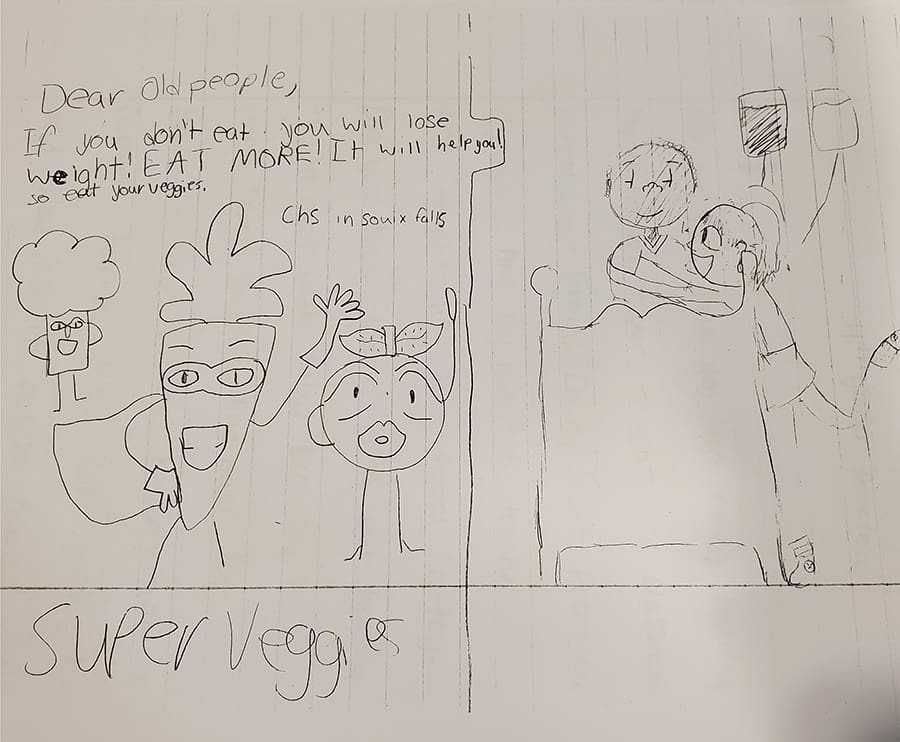 Dear Old people,
If you don't eat you will lose
weight! EAT MORE! It will help you!
so eat your veggies.
Chs in souix falls
Super Veggies